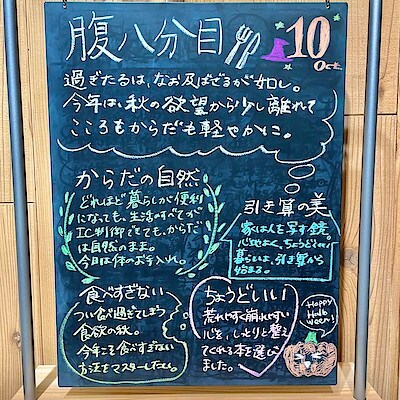 腹八分目
10
Oct.
過ぎたるは、なお及ばざるが如し。
今年は、秋の欲望から少し離れて
こころもからだも軽やかに。
からだの自然
どれほど暮らしが便利
になっても、生活のすべてが
IC制御できても、からだ
は自然のまま。
今月は体のお手入れ。
引き算の美
家は人を写す鏡
心地よく、ちょうどいい
暮らしは、引き算から
始まる。
食べすぎない
つい食べ過ぎてしまう
食欲の秋。
今年こそ食べすぎない
方法をマスターしたい。
ちょうどいい
荒れやすく崩れやすい
心を、しっとりと整え
てくれる本を選び
ました。
Happy
Hallo
ween!